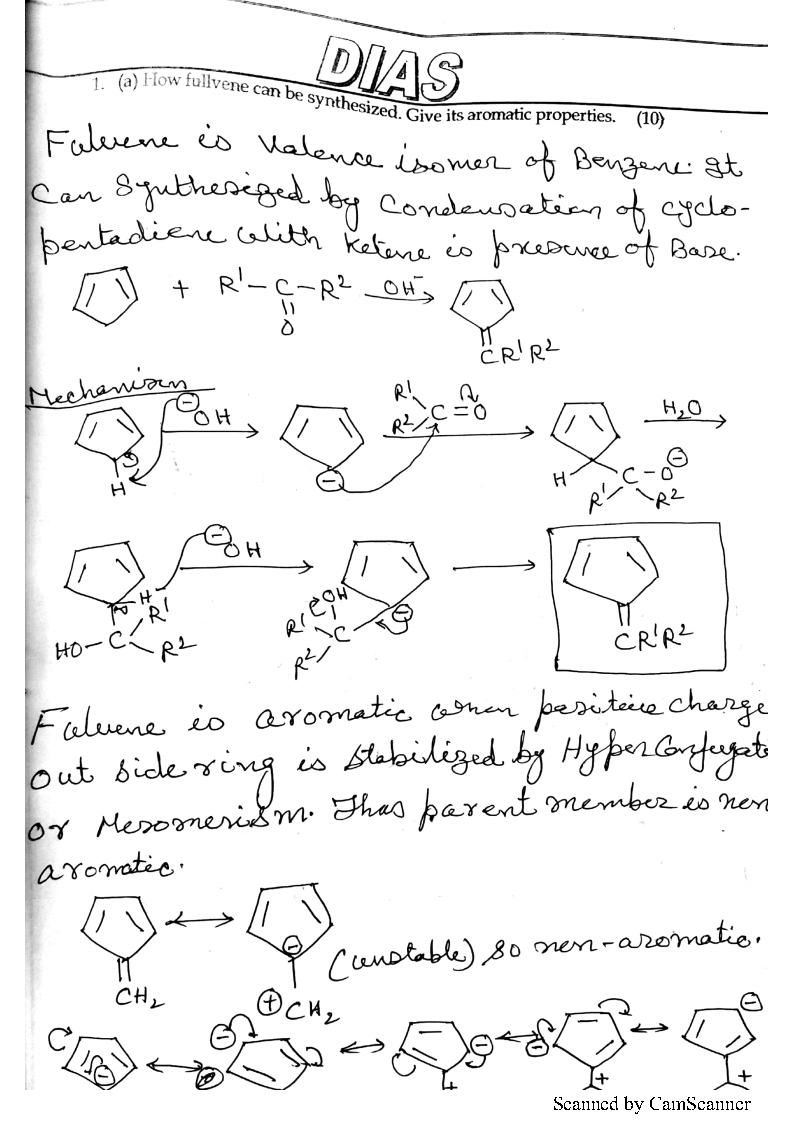 DIAS
1. (a) How fullvene can be synthesized. Give its aromatic properties. (10)
Fulvene is Valence isomer of Benzene. It
Can Synthesized by Condensation of cyclo-
pentadiene with Ketene is presence of Base.
+ R¹-C-R² OH⁻
O
CR¹R²
Mechanism
⊖OH
R¹
R² C=O
H₂O
H
⊖
H
C-O⊖
R¹ R²
⊖OH
H
R¹
HO-C
R²
OH
R¹
C
R²
⊖
CR¹R²
Fulvene is aromatic when positive charge
out side ring is stabilized by Hyper Conjugat
or Mesomerism. Thas parent member is non
aromatic.
CH₂
⊖
⊕CH₂
(unstable) so non-aromatic.
⊖ ⊖ ⊖ ⊖ ⊖
+ + +
Scanned by CamScanner